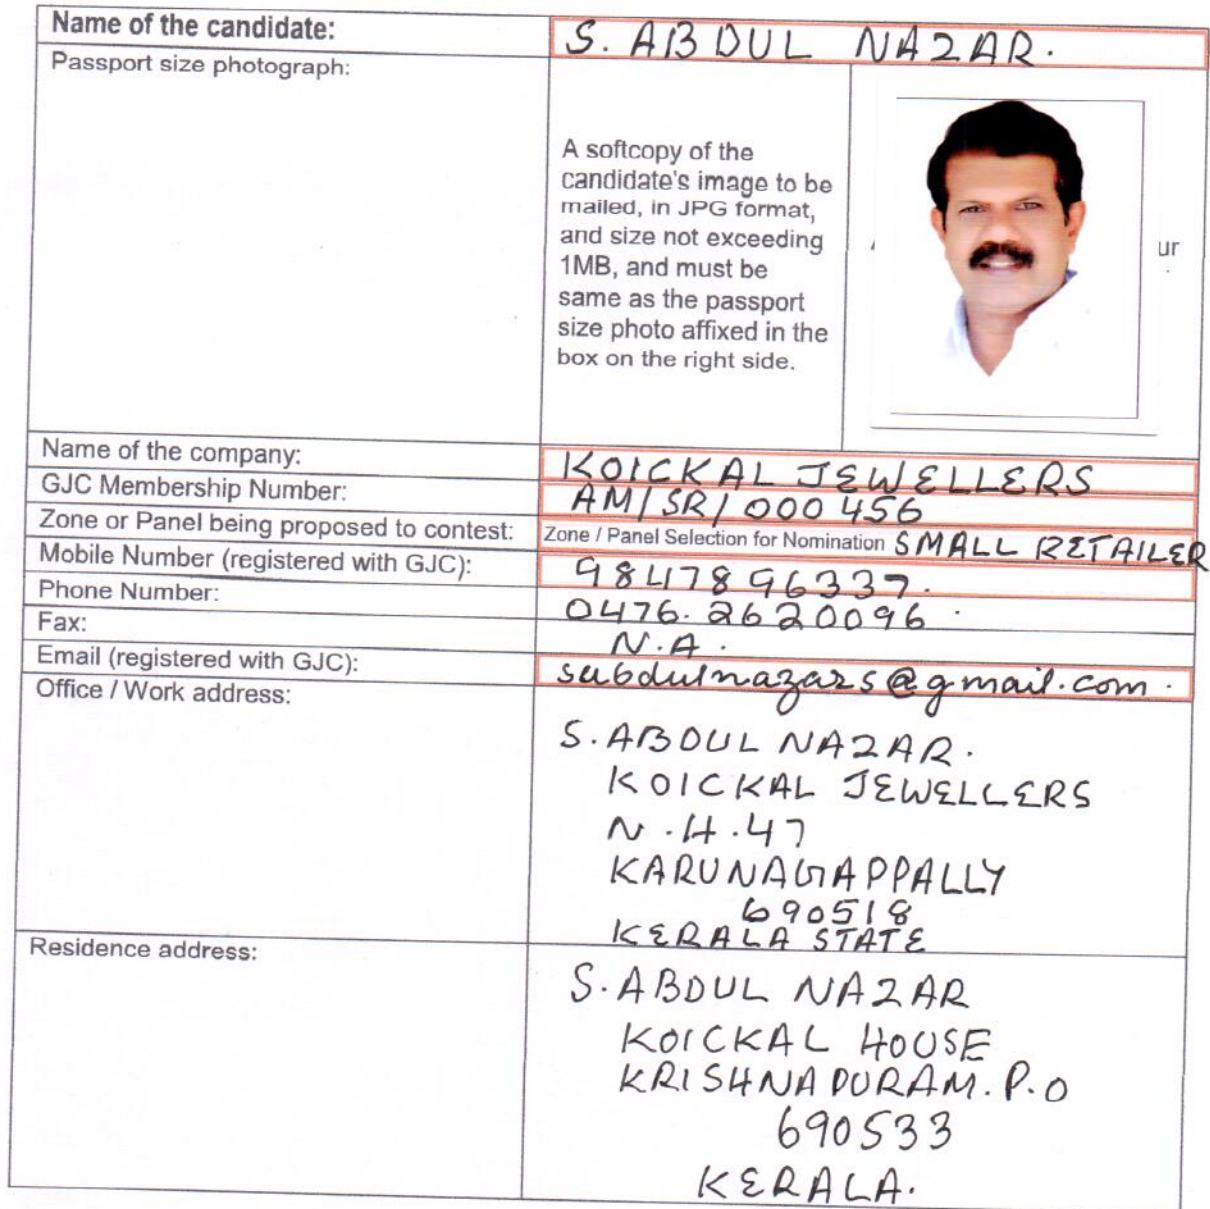 Name of the candidate: S. ABDUL NAZAR.
Passport size photograph:
A softcopy of the
candidate's image to be
mailed, in JPG format,
and size not exceeding
1MB, and must be
same as the passport
size photo affixed in the
box on the right side.
ur
Name of the company: KOICKAL JEWELLERS
GJC Membership Number: AM/SR/000456
Zone or Panel being proposed to contest: Zone / Panel Selection for Nomination SMALL RETAILER
Mobile Number (registered with GJC): 9847896337.
Phone Number: 0476.2620096.
Fax: N.A.
Email (registered with GJC): sabdulnazars@gmail.com.
Office / Work address:
S. ABDUL NAZAR.
KOICKAL JEWELLERS
N.H.47
KARUNAGAPPALLY
690518
KERALA STATE
Residence address:
S. ABDUL NAZAR
KOICKAL HOUSE
KRISHNAPURAM. P.O
690533
KERALA.